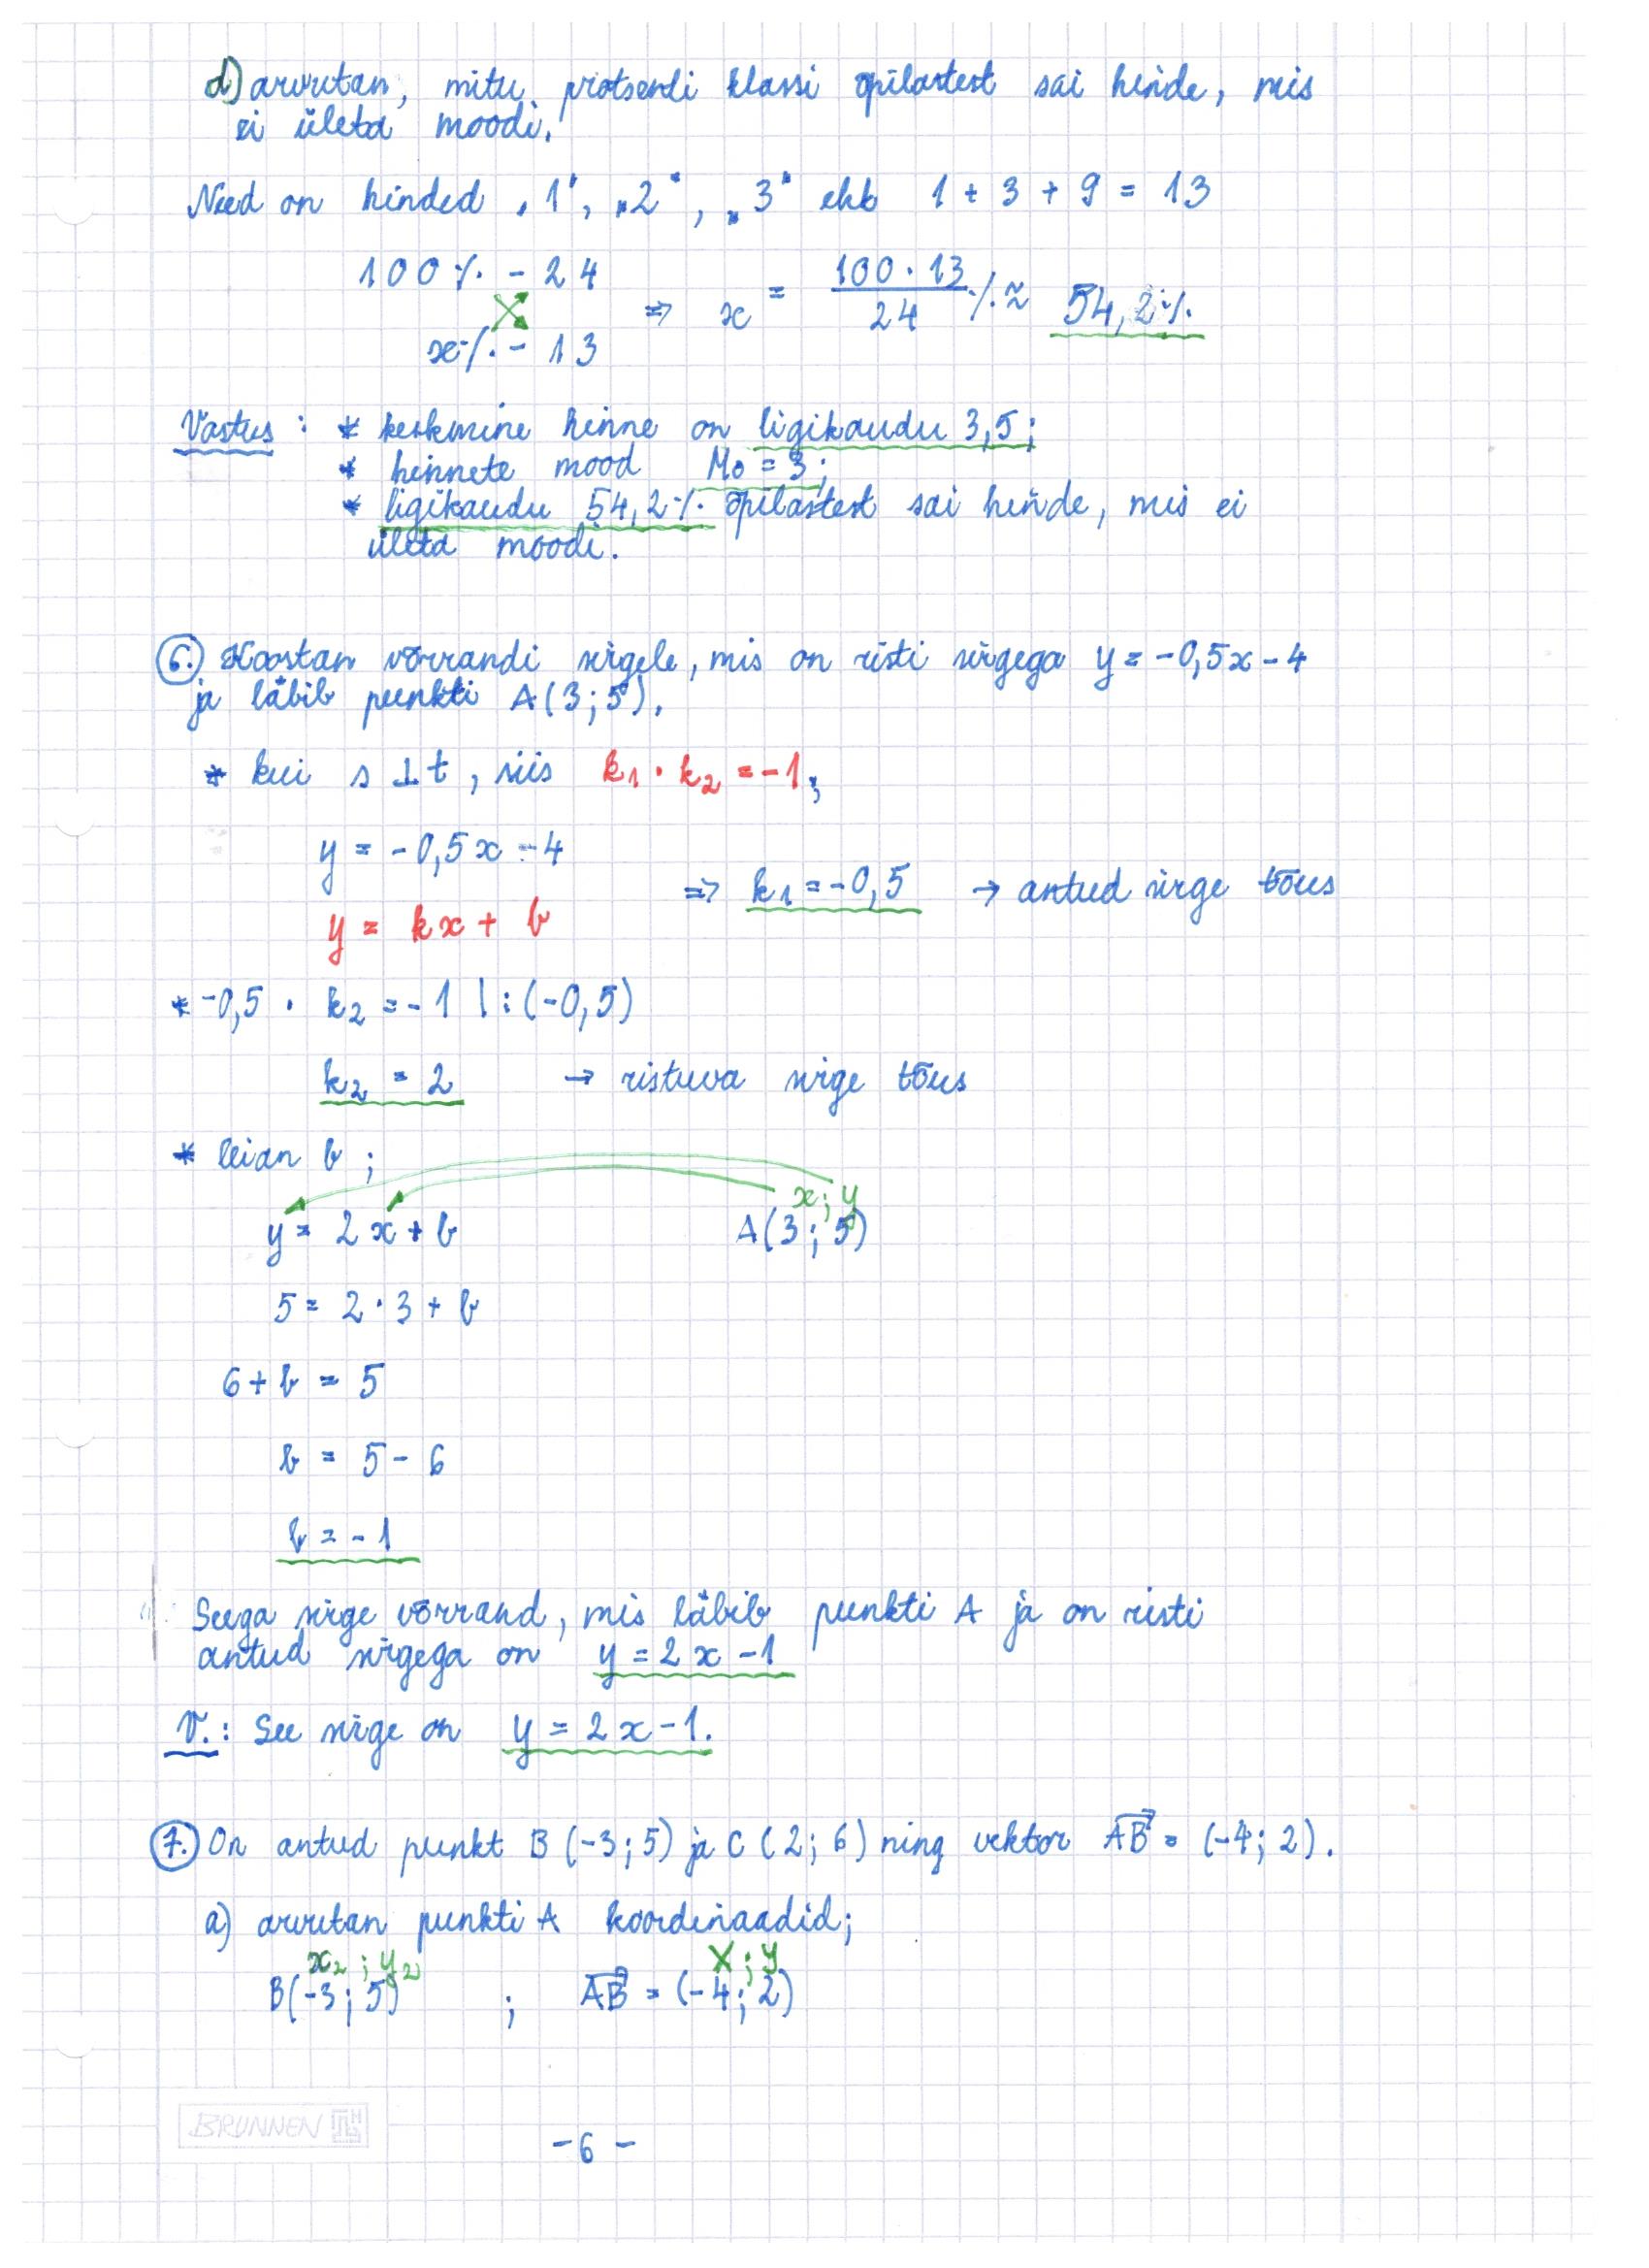 d) arvutan, mitu protsenti klassi õpilastest sai hinde, mis
ei ületa moodi.
Need on hinded „1", „2", „3" ehk 1 + 3 + 9 = 13
100% - 24
x% - 13
⇒ x = 100 · 13 / 24 % ≈ 54,2%
Vastus: * keskmine hinne on ligikaudu 3,5;
* hinnete mood Mo = 3;
* ligikaudu 54,2% õpilastest sai hinde, mis ei
ületa moodi.
6. Koostan võrrandi sirgele, mis on risti sirgega y = -0,5x - 4
ja läbib punkti A(3; 5).
* kui s ⊥ t, siis k₁ · k₂ = -1;
y = -0,5x - 4
⇒ k₁ = -0,5 → antud sirge tõus
y = kx + b
* -0,5 · k₂ = -1 | : (-0,5)
k₂ = 2 → ristuva sirge tõus
* leian b;
x; y
y = 2x + b A(3; 5)
5 = 2 · 3 + b
6 + b = 5
b = 5 - 6
b = -1
Seega sirge võrrand, mis läbib punkti A ja on risti
antud sirgega on y = 2x - 1
V.: See sirge on y = 2x - 1.
7. On antud punkt B (-3; 5) ja C (2; 6) ning vektor AB⃗ = (-4; 2).
a) arvutan punkti A koordinaadid;
x₂; y₂ X; y
B(-3; 5) ; AB⃗ = (-4; 2)
BRUNNEN
- 6 -